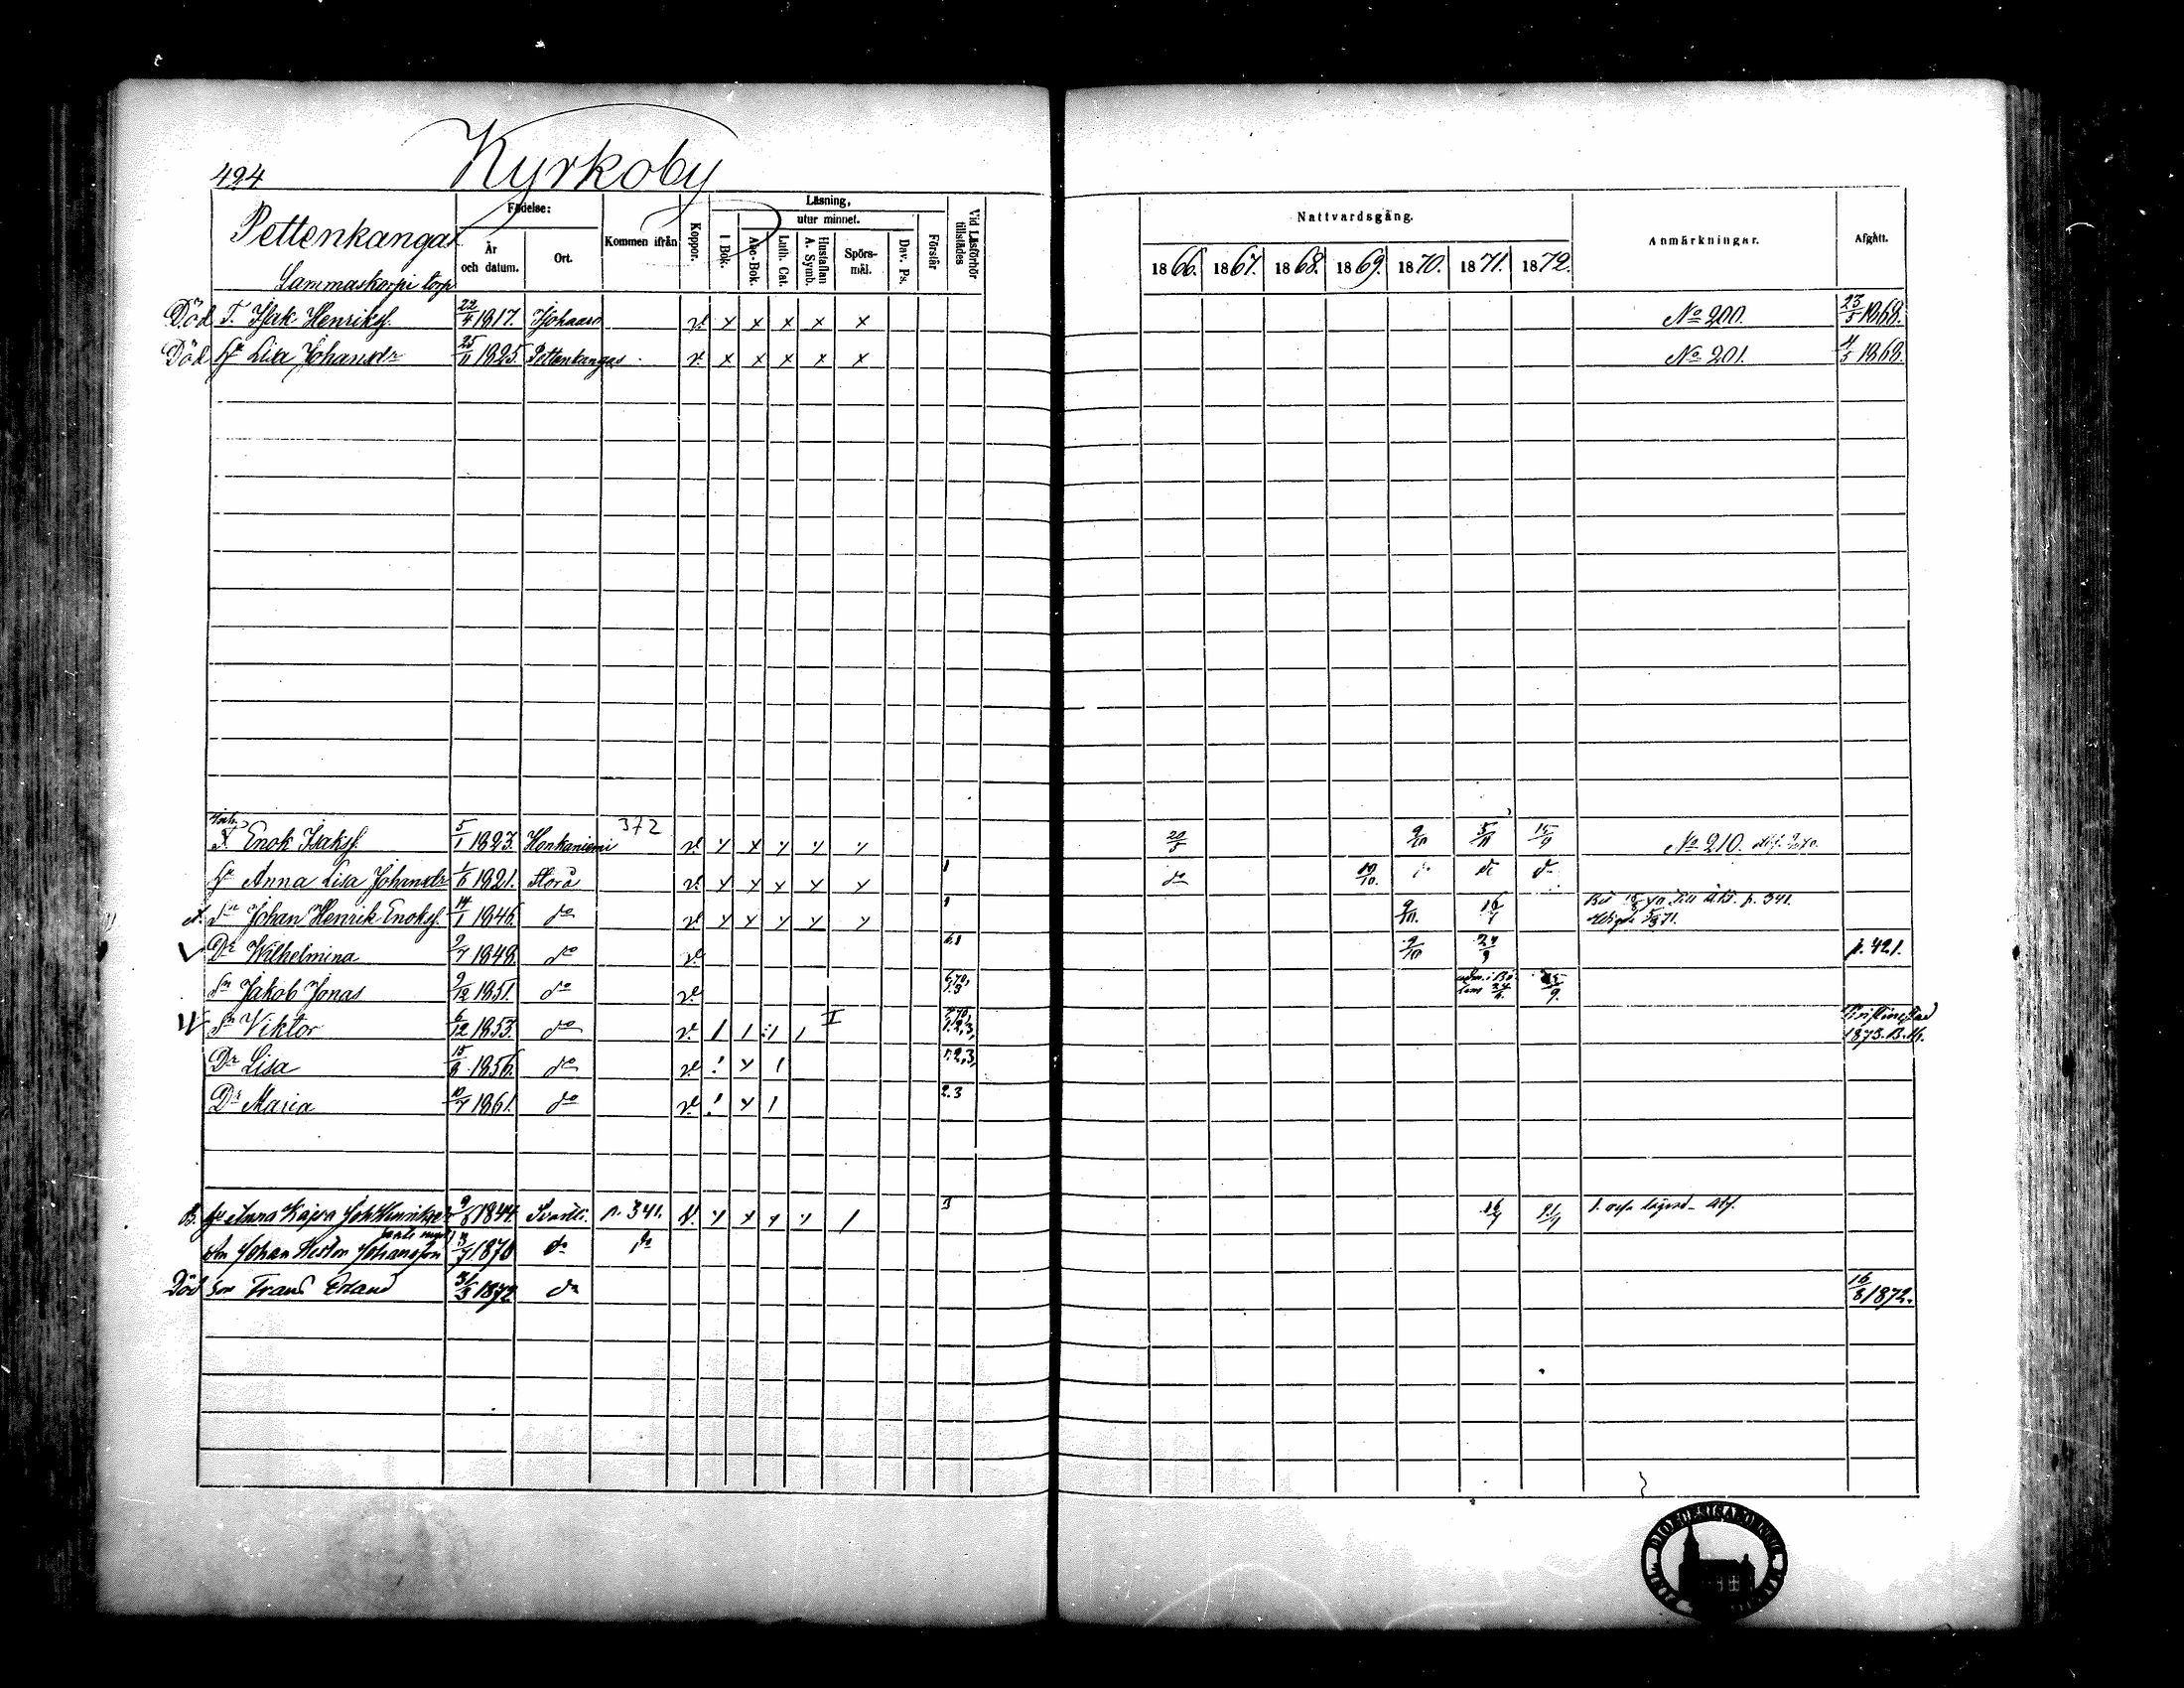 494 Kyrkoby
Pettenkangas
Sammaskorpi torp
Födelse:
År och datum.
Ort.
Kommen ifrån
Koppor.
Läsning,
utur minnet.
I Bok.
Abc-Bok.
Luth. Cat.
Hustaflan A. Symb.
Spörs-mål.
Dav. Ps.
Förstår
Vid Läsförhör tillstädes
Nattvardsgång.
1866. 1867. 1868. 1869. 1870. 1871. 1872.
Anmärkningar.
Afgått.
Död T. Isak Henrikss. 22/4 1817. v. x x x x x No 200. 23/5 1868.
Död Hu Lisa Johansdr 25/11 1825. Pettenkangas v. x x x x x No 201. 4/5 1868.
T. Enok Isakss. 5/1 1823. Honkaniemi 372 v. x x x x x 20/5 9/10 5/11 15/9 No 210.
Hu Anna Lisa Johansdr 1/6 1821. Storå v. x x x x x 1 do 10/10. do do do
Sn Johan Henrik Enokss. 14/1 1846. do v. x x x x x 1 9/10. 16/7 till p. 341.
Dr Wilhelmina 9/7 1848. do v. 9/10 24/9 p. 421.
Sn Jakob Jonas 9/12 1851. do v. 25/9.
Sn Viktor 6/12 1853. do v. 1 1 1 1 I 1.2,3, Kristinestad 1873.
Dr Lisa 15/8 1856. do v. ! x 1 1.2,3,
Dr Maria 10/7 1861. do v. ! x 1 2.3
B. Hu Anna Kajsa 9/8 1844. p. 341. v. x x x x 1 3 16/7
Son Johan Johansson 3/7 1870 do do
Död Son Frans Erland 31/3 1872 do 16/8 1872.